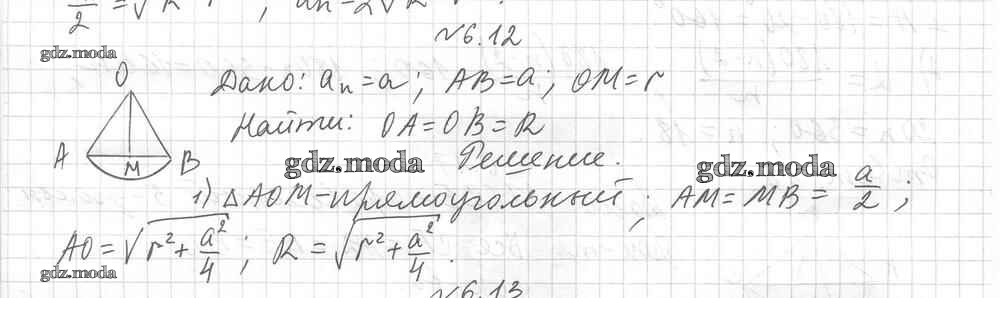 a/2 = √
№6.12
gdz.moda
O
Дано: aₙ = a; AB = a; OM = r
Найти: OA = OB = R
A M B
gdz.moda Решение. gdz.moda
1) △AOM – прямоугольный; AM = MB = a/2;
AO = √(r² + a²/4); R = √(r² + a²/4).
gdz.moda
№6.13